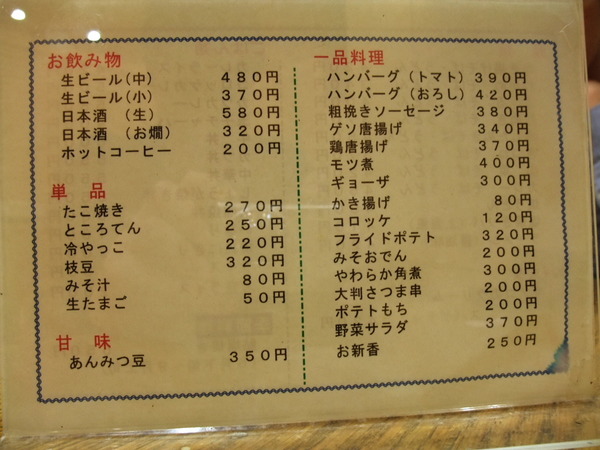 お飲み物
生ビール(中) 480円
生ビール(小) 370円
日本酒 (生) 580円
日本酒 (お燗) 320円
ホットコーヒー 200円
単 品
たこ焼き 270円
ところてん 250円
冷やっこ 220円
枝豆 320円
みそ汁 80円
生たまご 50円
甘 味
あんみつ豆 350円
一品料理
ハンバーグ(トマト) 390円
ハンバーグ(おろし) 420円
粗挽きソーセージ 380円
ゲソ唐揚げ 340円
鶏唐揚げ 370円
モツ煮 400円
ギョーザ 300円
かき揚げ 80円
コロッケ 120円
フライドポテト 320円
みそおでん 200円
やわらか角煮 300円
大判さつま串 200円
ポテトもち 200円
野菜サラダ 370円
お新香 250円